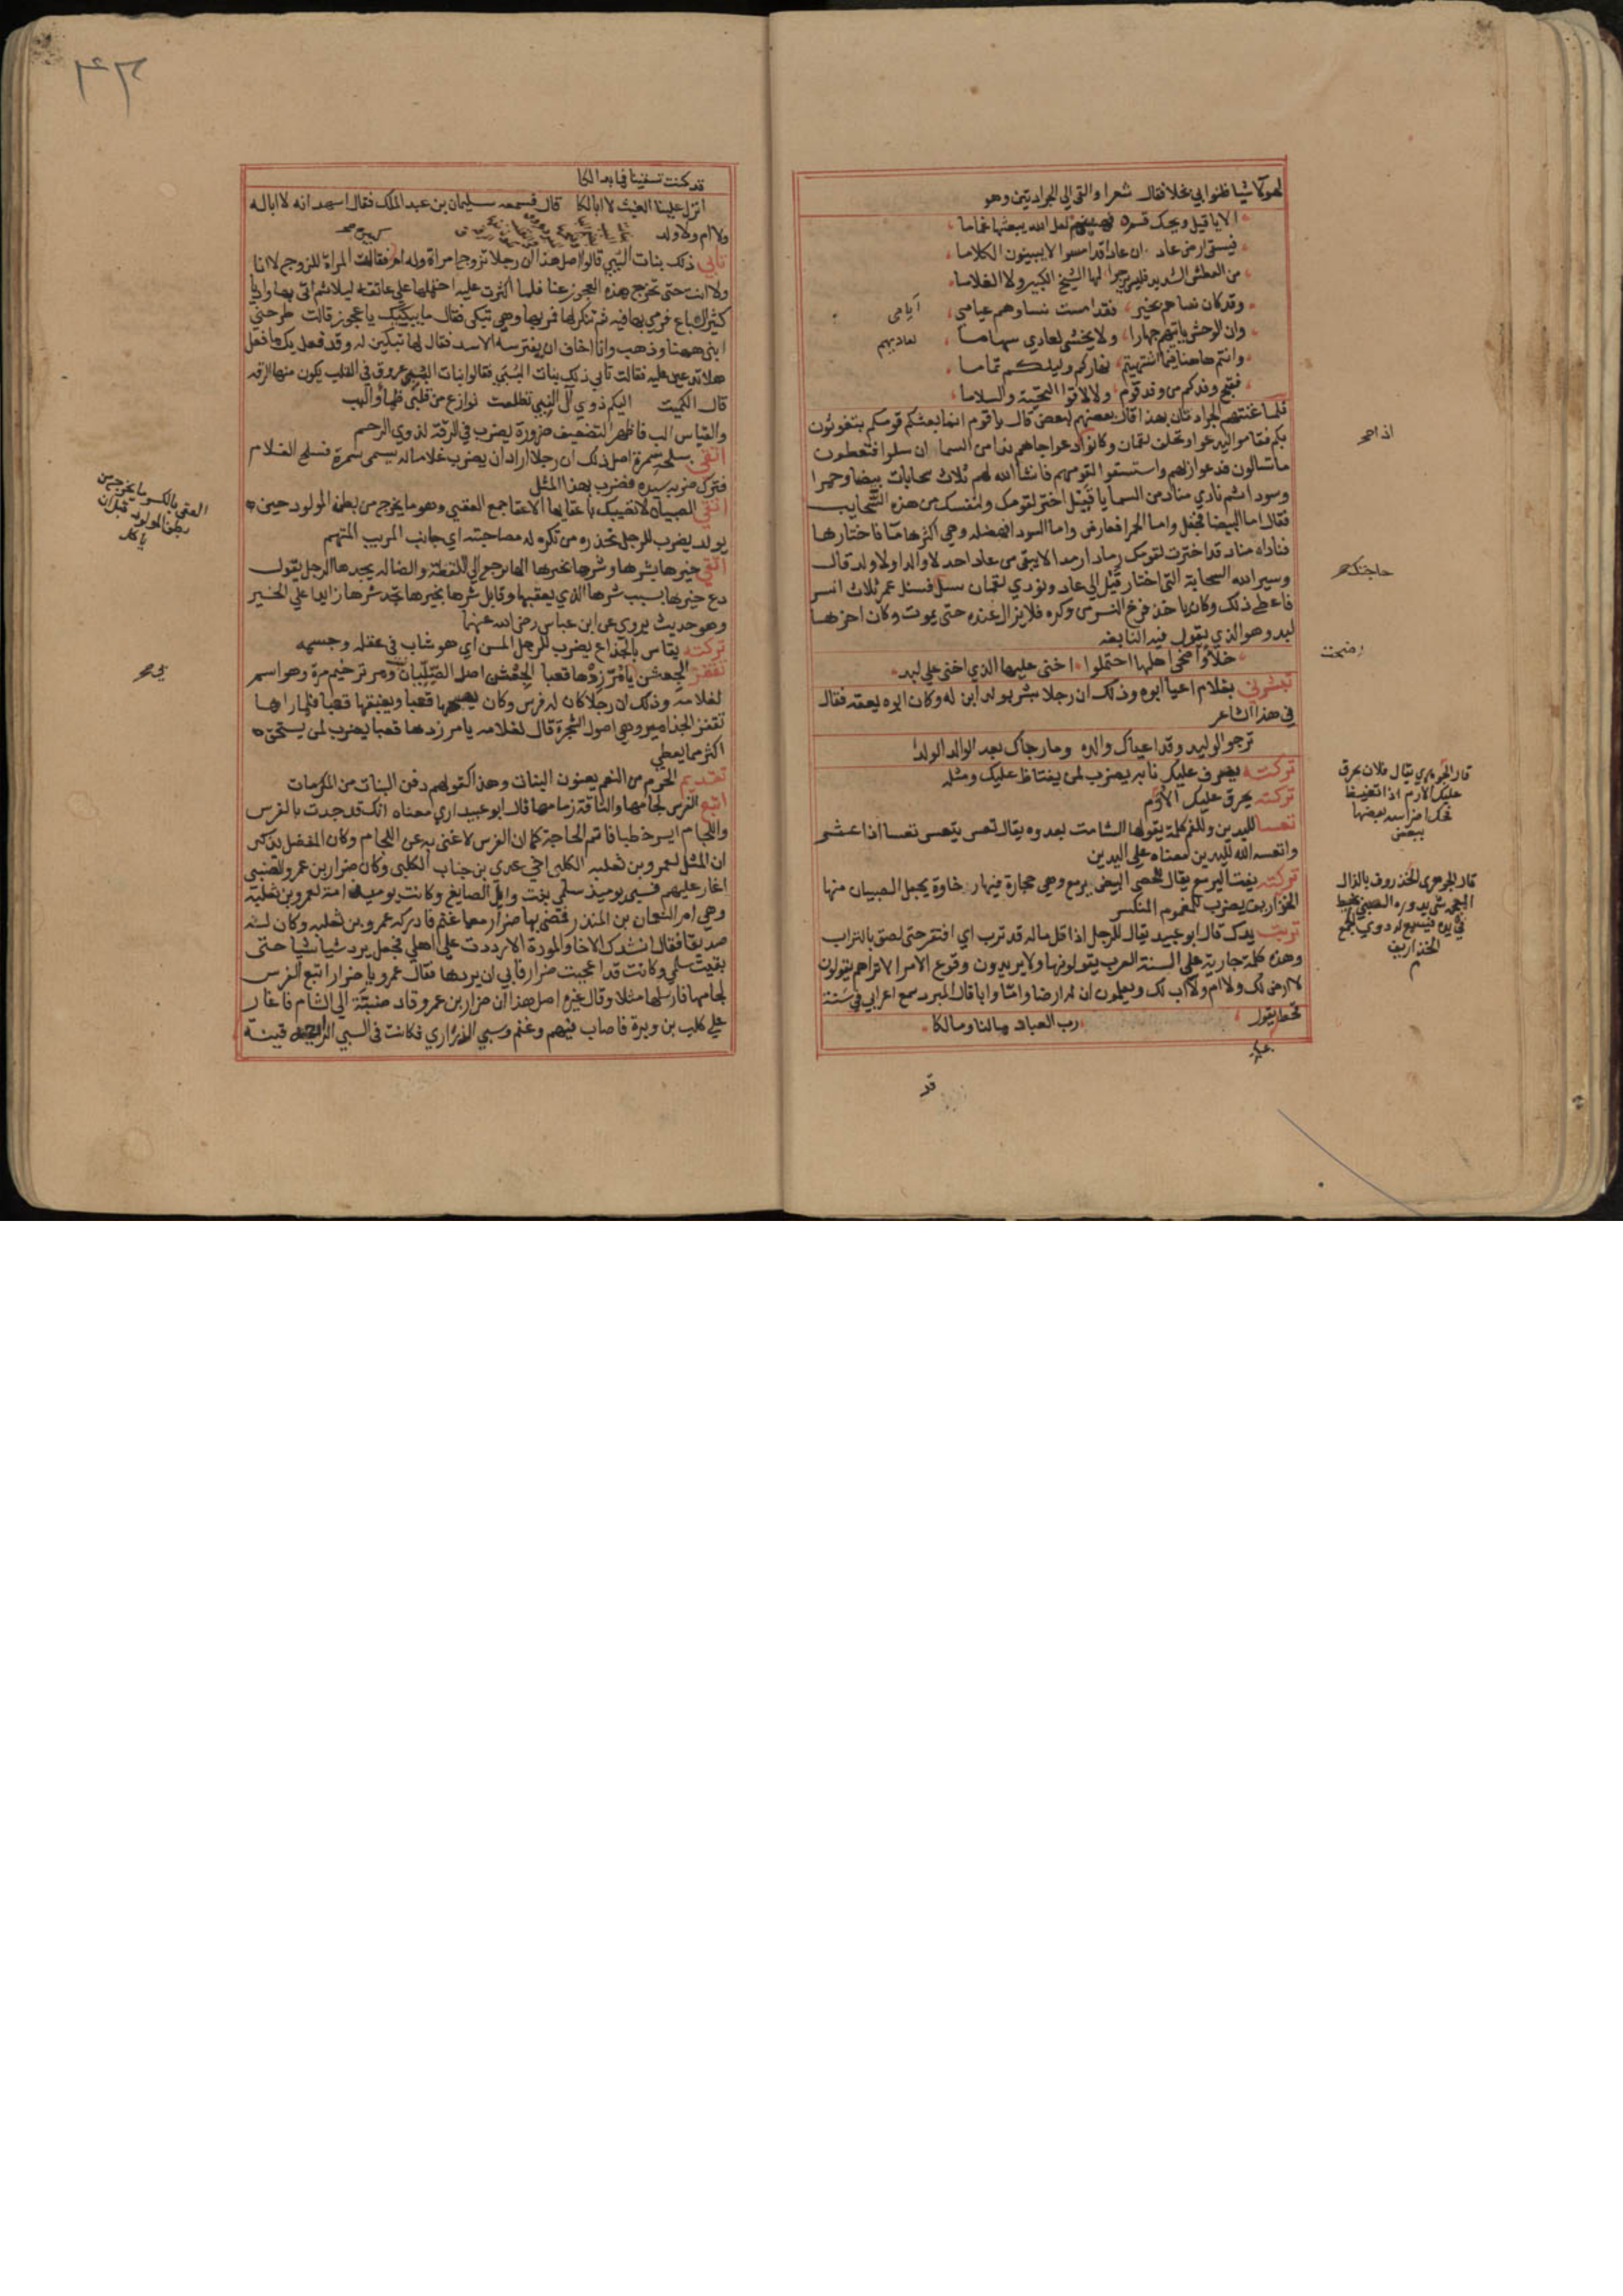 لهوكا شيا ظنوا بي بخلا فقال شعرا والقى الي الجرادتين وهو
الا يا قيل ويحك قم فهينم لعل الله يبعثها غماما
فيسقي ارض عاد ان عادا قد امسوا لا يبينون الكلاما
من العطش الشديد فليس نرجوا لها الشيخ الكبير ولا الغلاما
وقد كان نساهم بخير فقد امست نساوهم عيامى
وان الوحش ياتيهم جهارا ولا يخشى لعادي سهاما
وانتم هاهنا فيما اشتهيتم نهاركم وليلكم تماما
فقبح وفدكم من وفد قوم ولا لاقوا التحية والسلاما
فلما غنتهم الجرادتان بهذا قال بعضهم لبعض قال يا قوم انما بعثكم قومكم يتغوثون
بكم فقاموا ليدعوا وتخلف لقمان وكانوا اذا دعوا جاهم ندا من السما ان سلوا فتعطون
ما تسالون فدعوا ربهم واستسقوا لقومهم فانشا الله لهم ثلاث سحابات بيضا وحمرا
وسودا ثم نادي مناد من السما يا قيل اختر لقومك ولنفسك من هذه السحايب
فقال اما البيضا فجفل واما الحمرا فعارض واما السودا فهطله وهي اكثرها ما فاختارها
فناداه مناد قد اخترت لقومك رمادا رمددا لا يبقى من عاد احد لا والدا ولا ولد قال
وسير الله السحابة التي اختار قيل الي عاد ونودي لقمان سل فسئل عمر ثلاث انسر
فاعطى ذلك وكان ياخذ فرخ النسر من وكره فلا يزال عنده حتى يموت وكان اخرها
لبد وهو الذي يقول فيه النابغه
خلاء واضحى اهلها احتملوا اخنى عليها الذي اخنى على لبد
تبشرني بغلام اعيا ابوه وذلك ان رجلا بشر بولد ابن له وكان ابوه يعقه فقال
في هذا الشاعر
ترجو الوليد وقد اعياك والده وما رجاك بعد الوالد الولدا
تركته يصرف عليك نابه يضرب لمن يغتاظ عليك ومثله
تركته يحرق عليك الارم
تعسا لليدين وللفم كلمة يقولها الشامت بعدوه يقال تعس يتعس تعسا اذا عثر
واتعسه الله لليدين معناه على اليدين
تركته يفت اليرمع يقال للحصى البيض يرمع وهي حجارة فيها رخاوة يجعل الصبيان منها
الخذاريف يضرب للمغموم المنكسر
تربت يدك قال ابو عبيد يقال للرجل اذا قل ماله قد ترب اي افتقر حتى لصق بالتراب
وهذه كلمة جارية على السنة العرب يقولونها ولا يريدون وقوع الامر الا تراهم يقولون
لا ارض لك ولا ام ولا اب لك ويعلمون ان له ارضا واما وابا قال المبرد سمع اعرابي في سنة
قحط يقول رب العباد ما لنا وما لكا
قد
ايامى
لعاديهم
اذا صح
حاجتك صح
قال الجوهري يقال فلان يحرق
عليك الارم اذا تغيظ
فحك اضراسه بعضها
ببعض
قال الجوهري الخذروف بالذال
المعجمه شي يدوره الصبي بخيط
في يده فيسمع له دوي والجمع
الخذاريف
قد كنت تسقينا فما بدا لكا
انزل علينا الغيث لا ابا لكا قال فسمعه سليمان بن عبد الملك فقال اشهد انه لا ابا له
ولا ام ولا ولد
تابي ذلك بنات البي قالوا اصل هذا ان رجلا تزوج امراة وله ام فقالت المراة للزوج لا انا
ولا انت حتى تخرج هذه العجوز عنا فلما اكثرت عليه احتملها على عاتقه ليلا ثم اتى بها واديا
كثير السباع فرمى بها فيه ثم تنكر لها فمر بها وهي تبكي فقال ما يبكيك يا عجوز قالت طرحني
ابني ههنا وذهب وانا اخاف ان يفترسه الاسد فقال لها تبكين له وقد فعل بك ما فعل
هلا تدعين عليه فقالت تابي ذلك بنات البي فقالوا بنات البي عروق في القلب يكون منها الرقه
قال الكميت اليكم ذوي ال النبي تطلعت نوازع من قلبي ظما والبب
والقياس الب فاظهر التضعيف ضرورة يضرب في الرقة لذوي الرحم
اتقى بسلحه سمرة اصل ذلك ان رجلا اراد ان يضرب غلاما له يسمى سمرة فسلح الغلام
فترك ضربه سيده فضرب بهذا المثل
اتقي الصبيان لا تصيبك باعقايها الاعقا جمع العقي وهو ما يخرج من بطن المولود حين
يولد يضرب للرجل تحذره من تكره له مصاحبته اي جانب المريب المتهم
القي خيرها بشرها وشرها بخيرها الها ترجع الي اللقطة والضالة يجدها الرجل يقول
دع خيرها بسبب شرها الذي يعقبها وقابل شرها بخيرها تجد شرها زايدا على الخير
وهو حديث يروي عن ابن عباس رضي الله عنهما
تركته يقاس بالجذاع يضرب للرجل المسن اي هو شاب في عقله وجسمه
لغلامه وذلك ان رجلا كان له فرس وكان يصبحها قعبا ويغبقها قعبا فلما راها
تقفز الجذامير وهي اصول الشجرة قال لغلامه يا مر زدها قعبا يضرب لمن يستحق
اكثر مما يعطي
تقديم الحرم من النعم يعنون البنات وهذا كقولهم دفن البنات من المكرمات
اتبع الفرس لجامها والناقة زمامها قال ابو عبيد اري معناه انك قد جدت بالفرس
واللجام ايسر خطبا فاتم الحاجة كما ان الفرس لا غنى به عن اللجام وكان المفضل يذكر
ان المثل لعمرو بن ثعلبه الكلبي اخي عدي بن جناب الكلبي وكان ضرار بن عمرو الضبي
اغار عليهم فسبى يوميذ سلمى بنت وايل الصايغ وكانت يوميذ امة لعمرو بن ثعلبة
وهي ام النعمان بن المنذر فمضى بها ضرار معما غنم فادركه عمرو بن ثعلبه وكان له
صديقا فقال انشدك الاخا والمودة الا رددت علي اهلي فجعل يرد شيا شيا حتى
بقيت سلمى وكانت قد اعجبت ضرارا فابي ان يردها فقال عمرو يا ضرار اتبع الفرس
لجامها فارسلها مثلا وقال غيره اصل هذا ان ضرار بن عمرو قاد ضبة الي الشام فاغار
على كلب بن وبرة فاصاب فيهم وغنم وسبي الذراري فكانت في السبي الرايعه قينة
العقي بالكسر ما يخرج من
بطن المولود قبل ان
ياكل